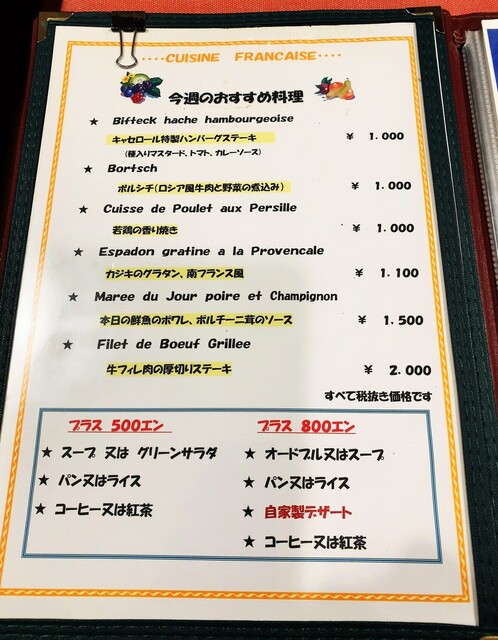 ····CUISINE FRANCAISE····
今週のおすすめ料理
★ Bifteck hache hambourgeoise
キャセロール特製ハンバーグステーキ ¥ 1.000
(種入りマスタード、トマト、カレーソース)
★ Bortsch
ボルシチ(ロシア風牛肉と野菜の煮込み) ¥ 1.000
★ Cuisse de Poulet aux Persille
若鶏の香り焼き ¥ 1.000
★ Espadon gratine a la Provencale
カジキのグラタン、南フランス風 ¥ 1.100
★ Maree du Jour poire et Champignon
本日の鮮魚のポワレ、ポルチーニ茸のソース ¥ 1.500
★ Filet de Boeuf Grillee
牛フィレ肉の厚切りステーキ ¥ 2.000
すべて税抜き価格です
プラス 500エン
★ スープ 又は グリーンサラダ
★ パン又はライス
★ コーヒー又は紅茶
プラス 800エン
★ オードブル又はスープ
★ パン又はライス
★ 自家製デザート
★ コーヒー又は紅茶